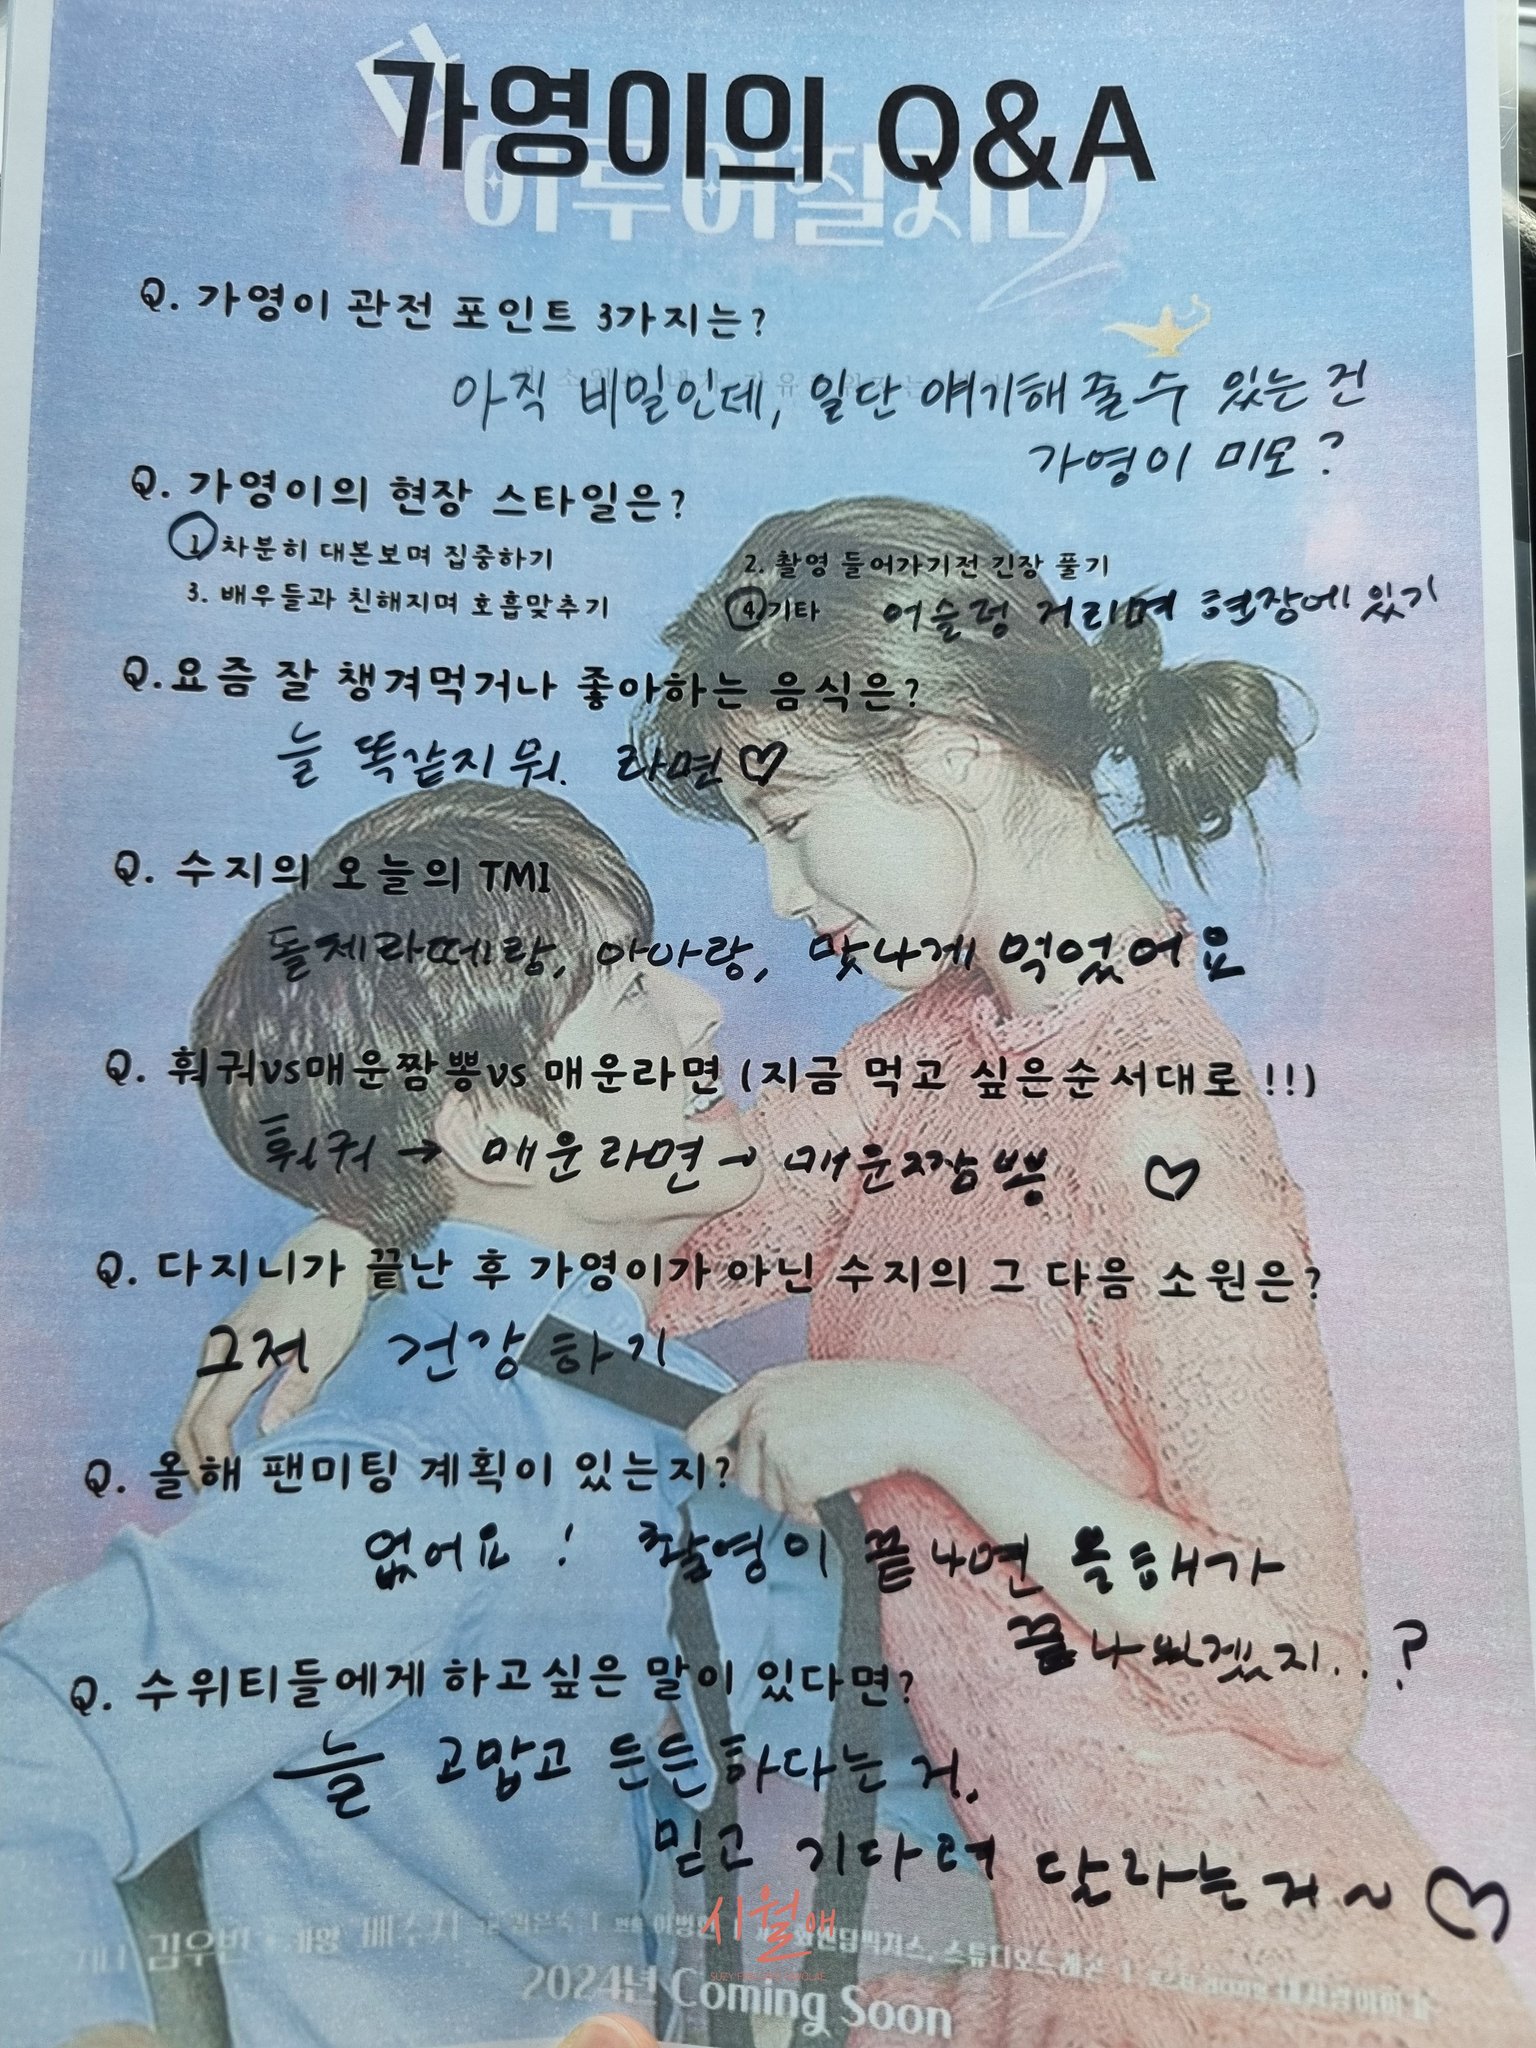 가영이의 Q&A
다 이루어질지니
Q. 가영이 관전 포인트 3가지는?
아직 비밀인데, 일단 얘기해 줄 수 있는 건
가영이 미모?
Q. 가영이의 현장 스타일은?
1. 차분히 대본보며 집중하기 2. 촬영 들어가기전 긴장 풀기
3. 배우들과 친해지며 호흡맞추기 4. 기타 어슬렁 거리며 현장에 있기
Q. 요즘 잘 챙겨먹거나 좋아하는 음식은?
늘 똑같지 뭐. 라면♡
Q. 수지의 오늘의 TMI
돌체라떼랑, 아아랑, 맛나게 먹었어요
Q. 훠궈vs매운짬뽕vs 매운라면 (지금 먹고 싶은순서대로 !!)
훠궈 → 매운라면 → 매운짬뽕 ♡
Q. 다지니가 끝난 후 가영이가 아닌 수지의 그 다음 소원은?
그저 건강하기
Q. 올해 팬미팅 계획이 있는지?
없어요! 촬영이 끝나면 올해가
끝나쁘겠지..?
Q. 수위티들에게 하고싶은 말이 있다면?
늘 고맙고 든든하다는 거.
믿고 기다려 달라는거~ ♡
시월애
김우빈 가영 배수지 김은숙 | 화앤담픽쳐스, 스튜디오드래곤
2024년 Coming Soon